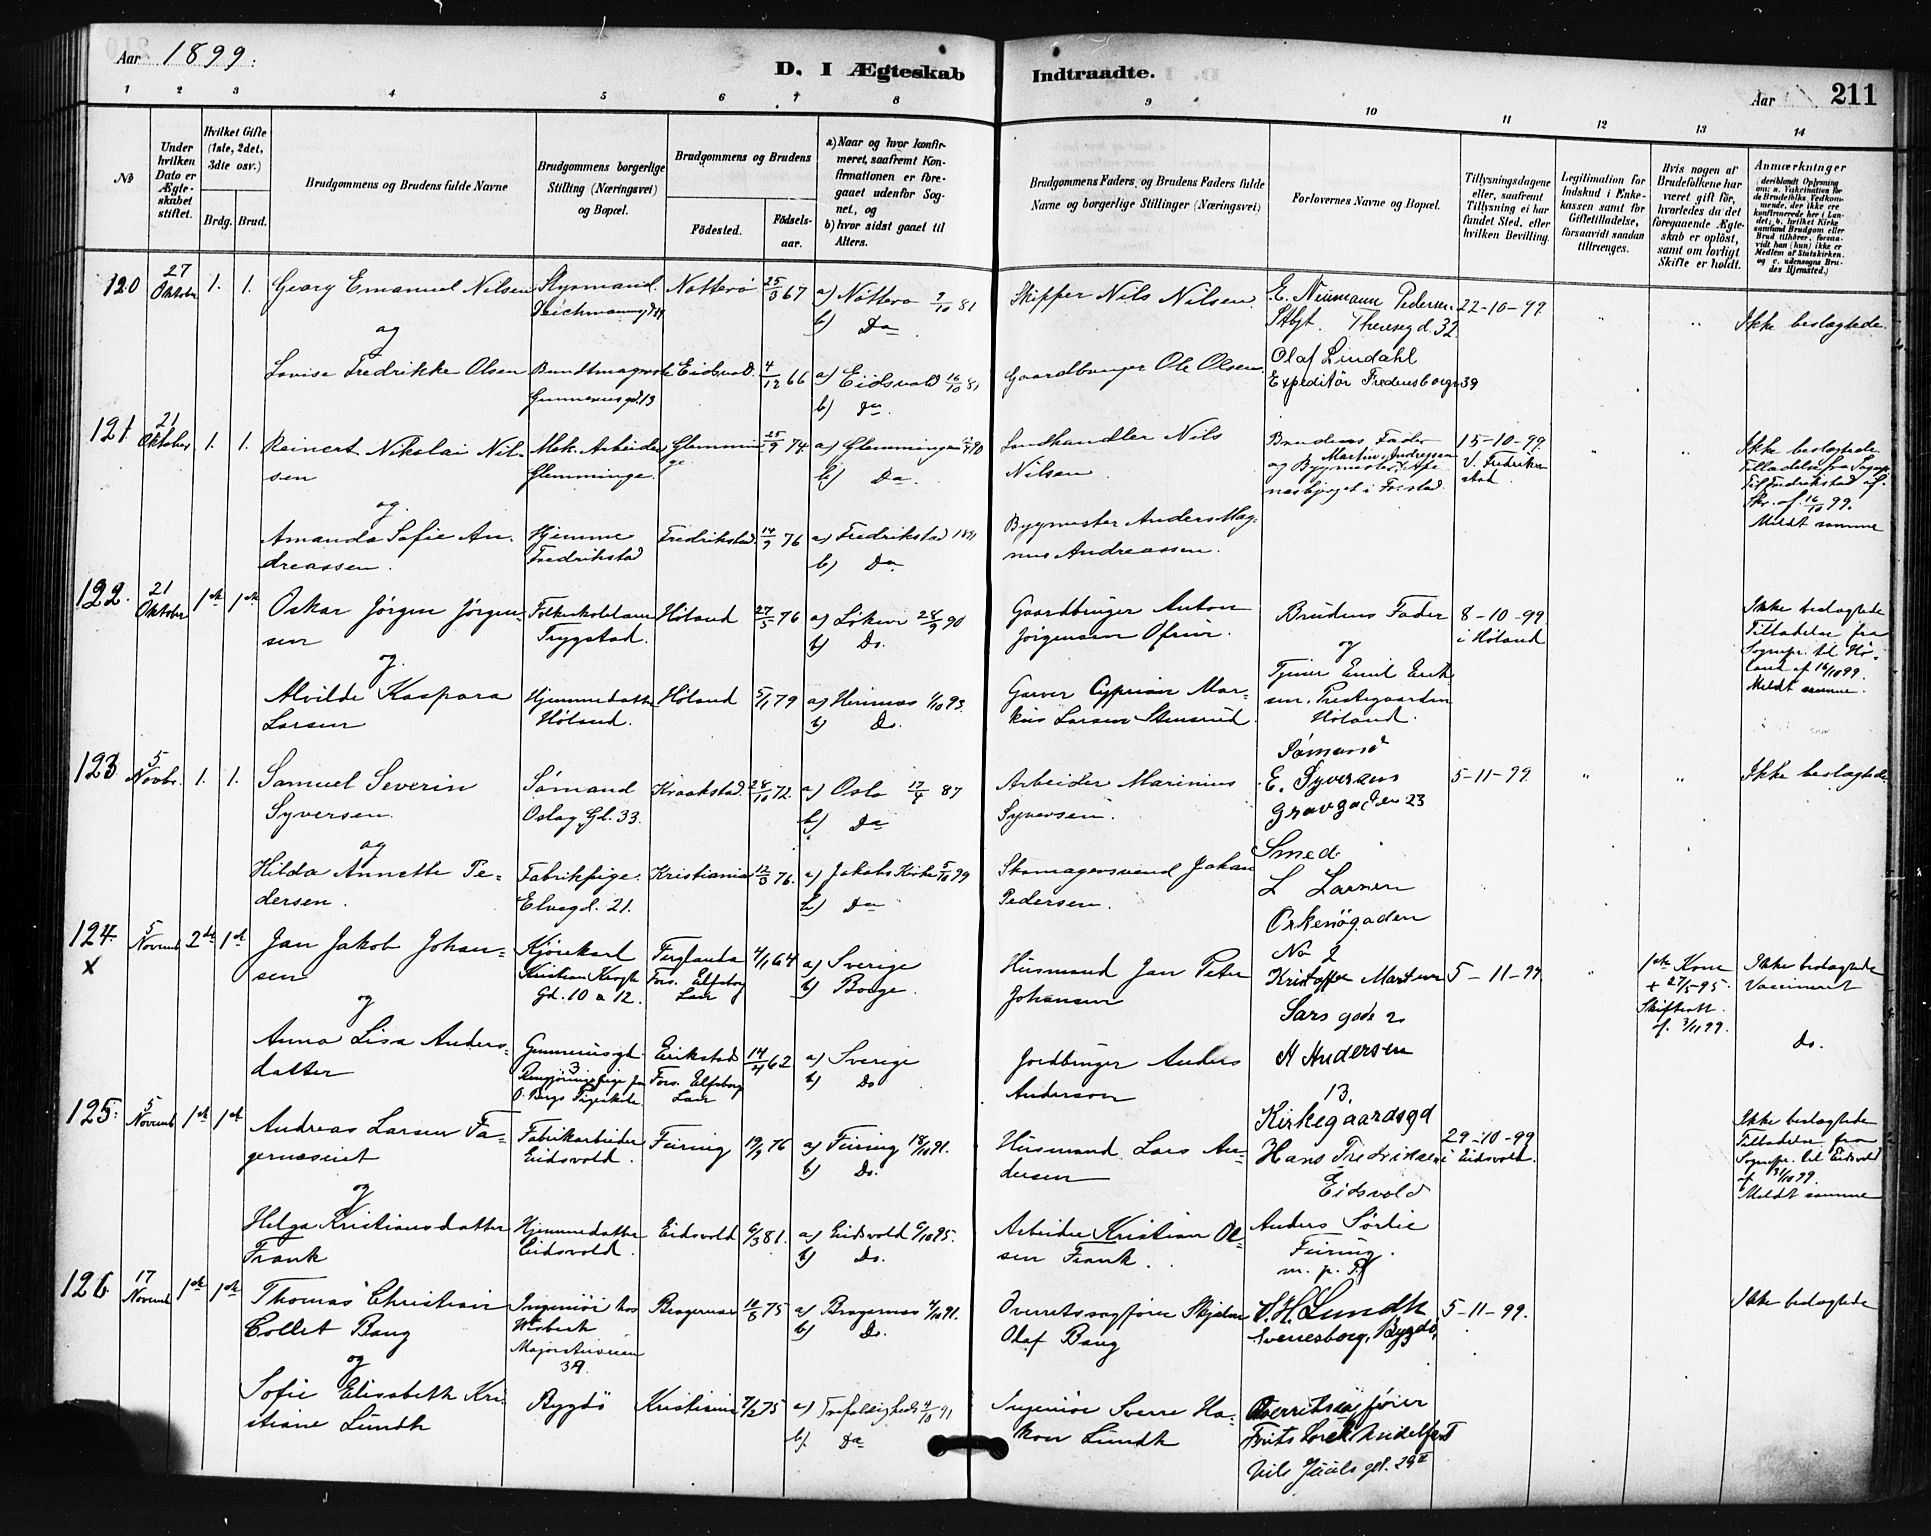 Aar 1899.
D. I Ægteskab Indtraadte.
Aar 211
1 2 3 4 5 6 7 8 9 10 11 12 13 14
No
Under hvilken Dato er Ægteskabet stiftet.
Hvilket Gifte (1ste, 2det, 3die osv.)
Brdg. Brud.
Brudgommens og Brudens fulde Navne
Brudgommens borgerlige Stilling (Næringsvei) og Bopæl.
Brudgommens og Brudens
Fødested. Fødsels-aar.
a) Naar og hvor konfirmeret, saafremt Konfirmationen er foregaaet udenfor Sognet, og
b) hvor sidst gaaet til Alters.
Brudgommens Faders og Brudens Faders fulde Navne og borgerlige Stillinger (Næringsvei)
Forlovernes Navne og Bopæl.
Tillysningsdagene eller, saafremt Tillysning ei har fundet Sted, efter hvilken Bevilling.
Legitimation for Indskud i Enkekassen samt for Giftetilladelse, forsaavidt saadan tiltrænges.
Hvis nogen af Brudefolkene har været gift før, hvorledes da det foregaaende Ægteskab er opløst, samt om lovligt Skifte er holdt.
Anmærkninger
(deriblandt Oplysning om: a. Vakcination for de Brudefolks Vedkommende, der ikke ere konfirmerede her i Landet; b. hvilket Kirkesamfund Brudgom eller Brud tilhører, forsaavidt han (hun) ikke er Medlem af Statskirken, og c. udensogns Brudes Hjemsted.)
120 27 Oktober 1. 1. Georg Emanuel Nilsen
Styrmand. Nøtterø 25/3 67 a) Nøtterø 9/10 81
b) Do
Skipper Nils Nilsen
E. Neumann Pedersen
Theresegd. 32
22-10-99
Ikke beslægtede.
og
Lovise Fredrikke Olsen
Gunnerusgd. 13
Eidsvold 4/12 66 a) Eidsvold 16/10 81
b) Do
Gaardbruger Ole Olsen
Olaf Lindahl
Expeditør Fredensborgv 39
121. 21 Oktober 1. 1. Reinert Nikolai Nilsen
Mek. Arbeider Glemminge.
Glemminge 25/9 74 a) Glemminge 90
b) Do.
Landhandler Nils Nilsen
Brudens Fader
og Bygmester Martin Andressen
15-10-99. i Fredrikstad
Ikke beslægtede
Tilladelse fra Sognepr. til Fredrikstad af 16/10 99.
Meldt samme
og
Amanda Sofie Andreassen.
Hjemme Fredrikstad
Fredrikstad 14/9 76 a) Fredrikstad 1891
b) Do
Bygmester Anders Magnus Andreassen.
122. 21 Oktober 1ste 1ste Oskar Jørgen Jørgensen
Trygstad.
Høland 27/5 76 a) Løken 28/9 90
b) Do.
Gaardbruger Anton Jørgensen
Brudens Fader
og
8-10-99 i Høland
Ikke beslægtede
Tilladelse fra Sognepr. til Høland af 16/10 99.
Meldt samme.
og
Alvilde Kaspara Larsen
Hjemmedatter Høland.
Høland 5/1 79 a) Hemnæs 1/10 93.
b) Do.
Garver Cyprian Markus Larsen Stensrud.
Tjener Emil Eriksen, Prestegaarden Høland.
123 5 Novbr. 1. 1. Samuel Severin Syversen.
Sømand Oslog. Gd. 33.
Kraakstad. 28/10 72. a) Oslo 17/4 87
b) Do
Arbeider Marinius Syversen.
Sømand
E. Syversens
Gravgaden 23
5-11-99.
Ikke beslægtede
og
Hilda Annette Pedersen.
Fabrikpige. Elvegd. 21.
Kristiania 12/3 76. a) Jakobs Kirke 5/10 99
b) Do
Skomagersvend Johan Pedersen.
Smed
L Larsen
Orkenøgaden
No 2
124. x 5 Novemb 2den 1ste Jan Jakob Johansen
Kjørekarl Kristian Kroghs Gd. 10 a 12.
Fors. Elfsborg Län
4/1 64 a) Sverige
b) Borge.
Husmand Jan Peter Johansen
Kristoffer Martinsen
Sars gade 2
5-11-99.
1ste Kone + 27/5-95. Skifteatt. af. 3/11 99.
Ikke beslægtede
Vaccineret
og
Anna Lisa Andersdatter
Gunnerusgd. 3
Rengjøringspige fra O. Bergs Pigeskole
Erikstad Fors. Elfsborg Län
14/4 62 a) Sverige
b) Do
Jordbruger Anders Anderson
H Andersen
13.
Kirkegaardsgd
Do.
125. 5 Novemb 1ste 1ste Andreas Larsen Fagernæseiet
Fabrikarbeider Eidsvold.
Feiring 19/9 76 a) Feiring 18/10 91.
b) Do.
Husmand Lars Andersen
Hans Fredriksen
Eidsvold
29-10-99 i Eidsvold.
Ikke beslægtede
Tilladelse fra Sognepr. til Eidsvold af 31/10 99.
Meldt samme
og
Helga Kristiansdatter Frank
Hjemmedatter Eidsvold.
Eidsvold 6/3 81. a) Eidsvold 6/10 95.
b) Do.
Arbeider Kristian Olsen Frank.
Anders Sørlie
Feiring.
m. p. P.
126 17 Novemb 1ste 1ste Thomas Christian Collet Bang
Ingeniør hos
Majorstuveien 39.
Bragernæs 75 a) Bragernæs 91.
b) Do.
Overretssagfører Skjelm Olaf Bang
S. H. Lundh
Sverresborg, Bygdø.
5-11-99.
Ikke beslægtede
og
Sofie Elisabeth Kristiane Lundh
Bygdø
Kristiania 7/2 75 a) Trefoldigheds 4/10 91
b) Do
Ingeniør Sverre Hakon Lundh
Overretssagfører
Nils Juuls gd. 29 II